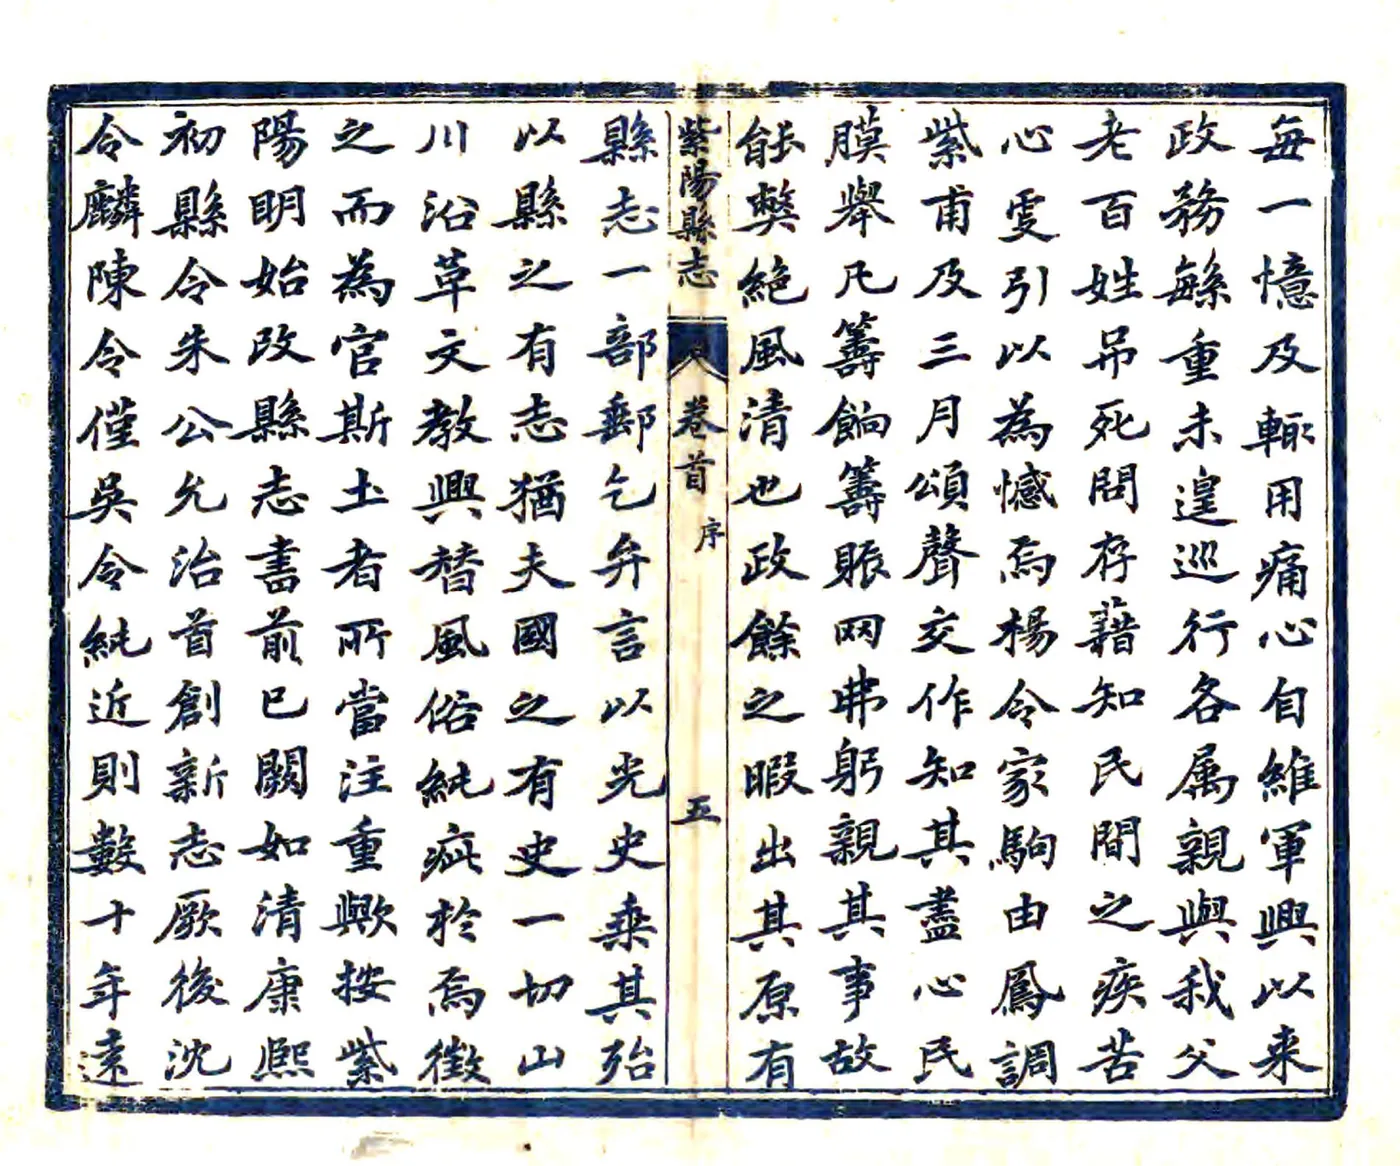 每一憶及輙用痛心自維軍興以来
政務緐重未遑巡行各属親與我父
老百姓吊死問存藉知民間之疾苦
心雯引以為憾焉楊令家駒由鳳調
紫甫及三月頌聲交作知其盡心民
膜舉凡籌餉籌賑罔弗躬親其事故
能獘絕風清也政餘之暇出其原有
紫陽縣志
卷首
序
五
縣志一部郵乞弁言以光史乘其殆
以縣之有志猶夫國之有史一切山
川沿革文教興替風俗純疵於焉徵
之而為官斯土者所當注重歟按紫
陽明始改縣志書前已闕如清康熙
初縣令朱公允治首創新志厥後沈
令麟陳令僅吳令純近則數十年遠